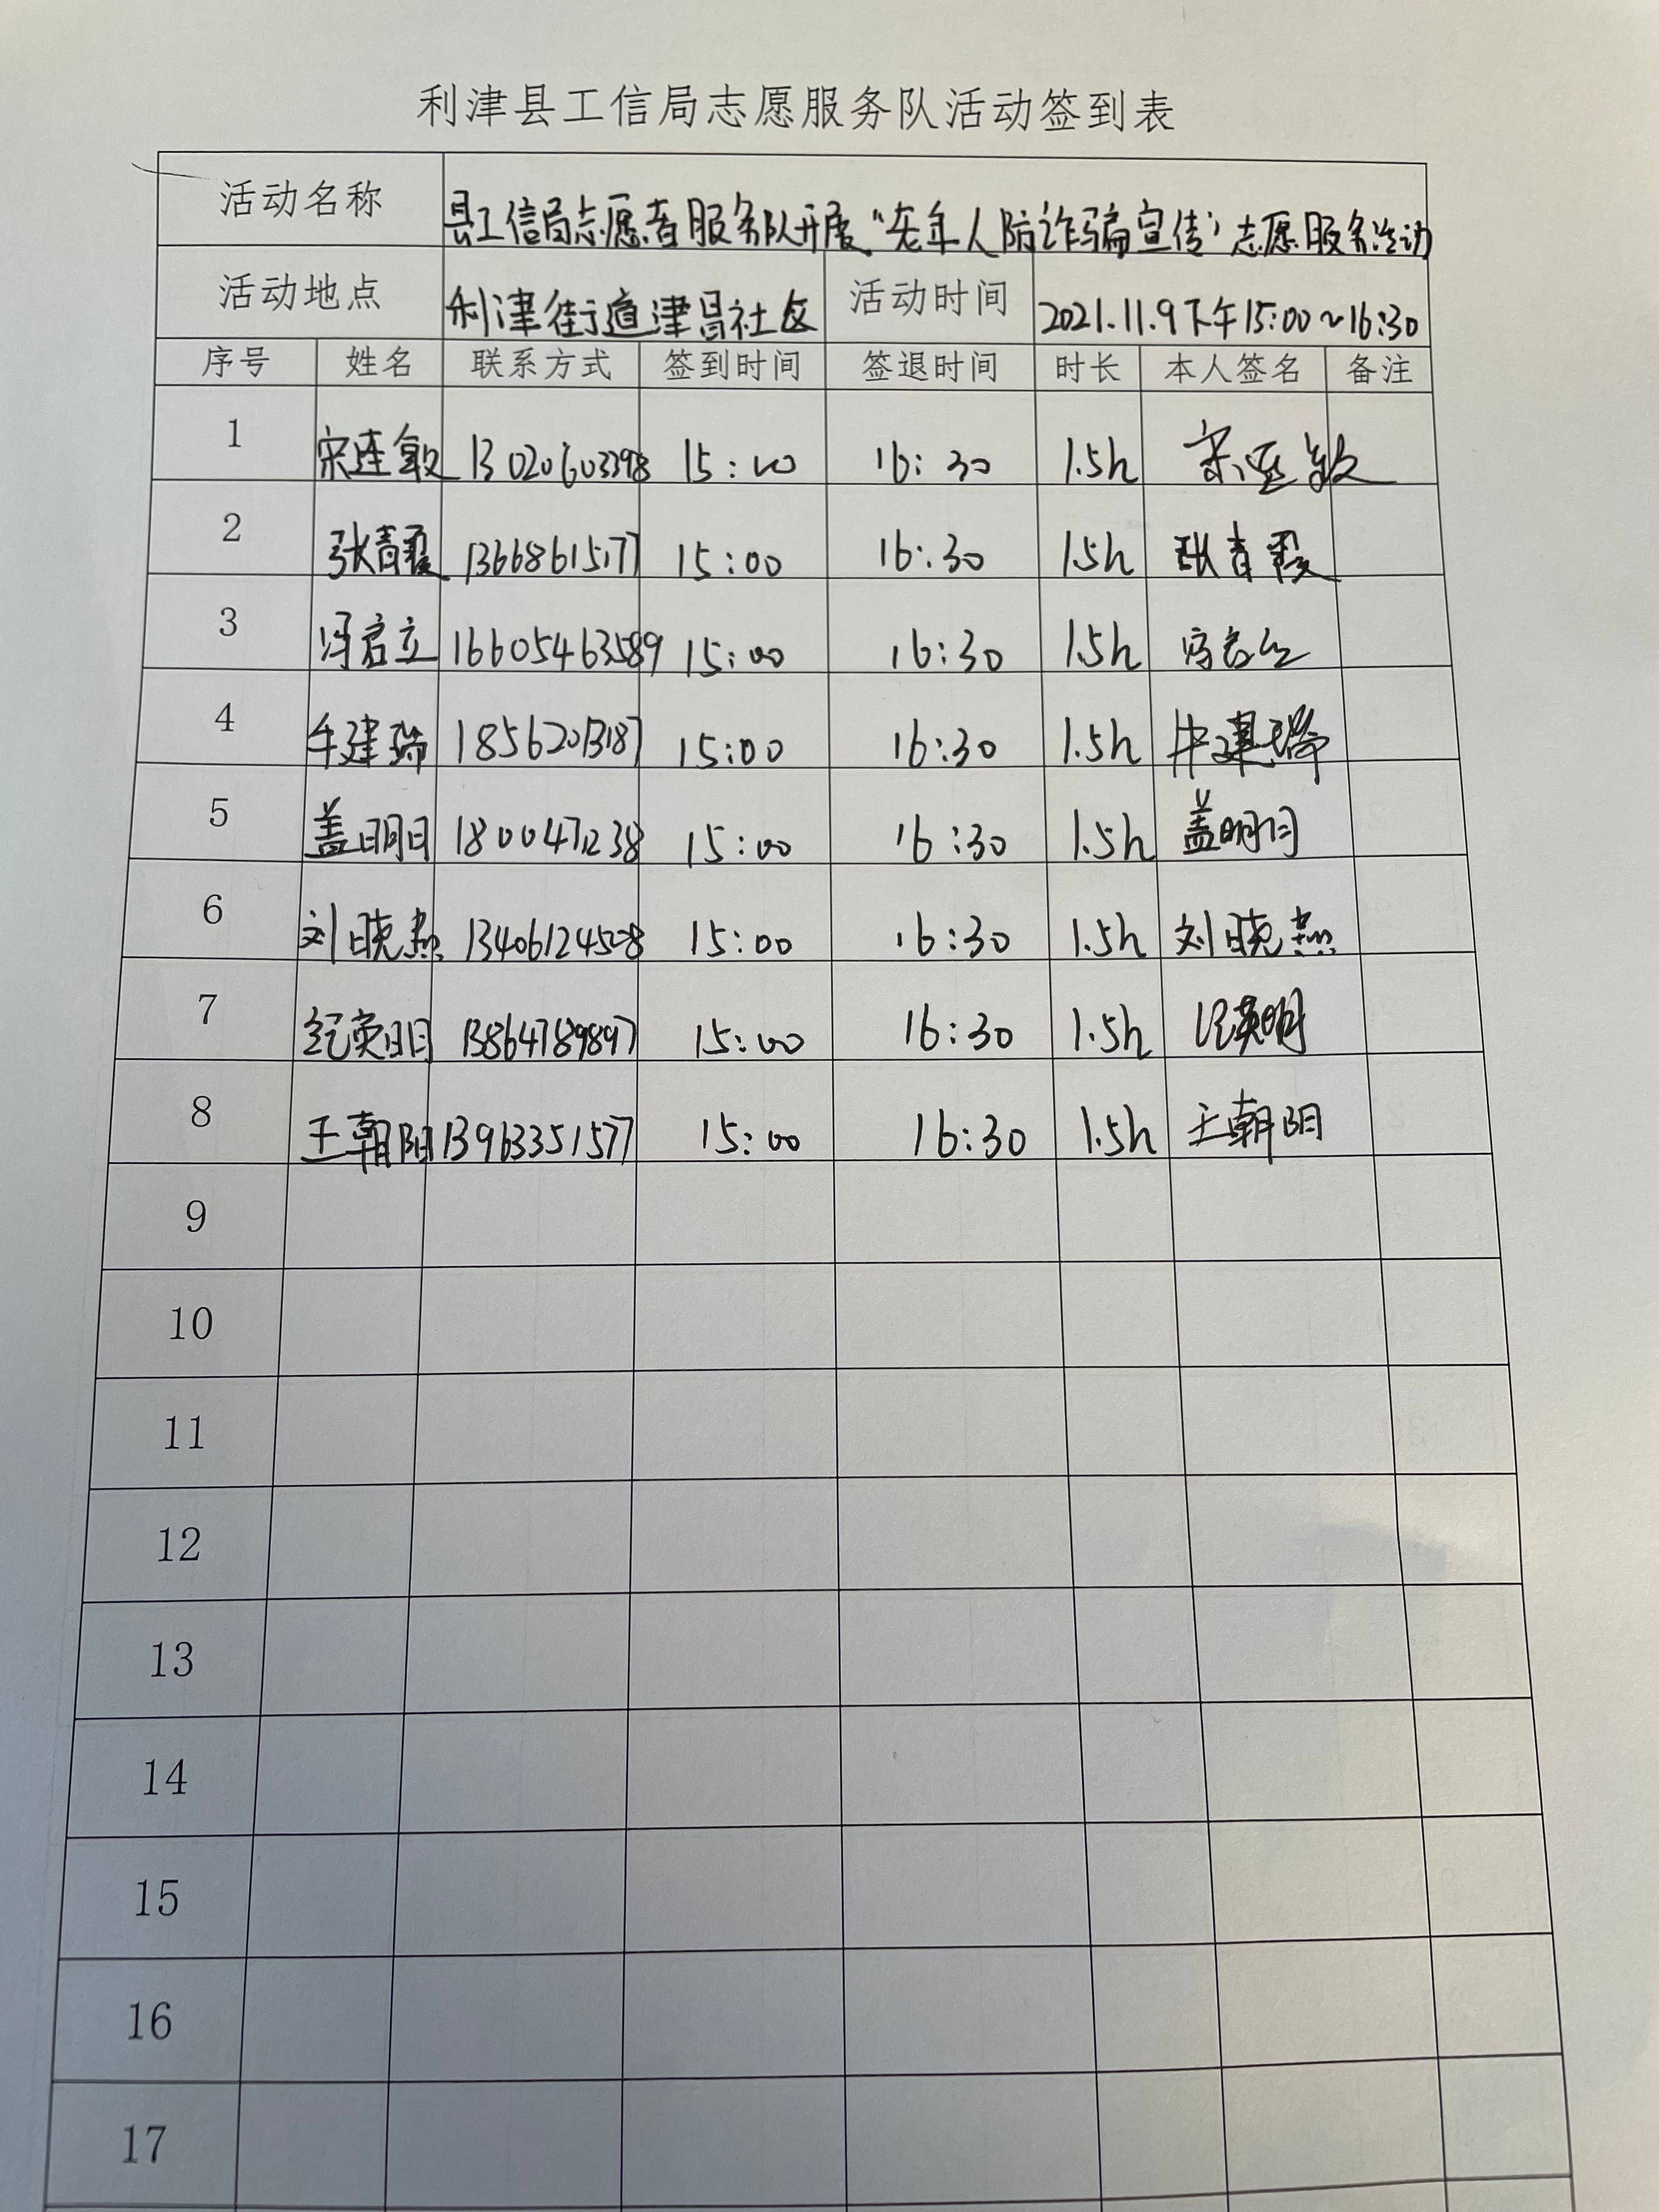 利津县工信局志愿服务队活动签到表
活动名称 县工信局志愿者服务队开展“老年人防诈骗宣传”志愿服务活动
活动地点 利津街道津昌社区 活动时间 2021.11.9下午15:00~16:30
序号 姓名 联系方式 签到时间 签退时间 时长 本人签名 备注
1 宋连敏 13020603398 15:00 16:30 1.5h 宋连敏
2 张青霞 13668615177 15:00 16:30 1.5h 张青霞
3 冯启立 16605463589 15:00 16:30 1.5h 冯启立
4 牟建瑞 18562013187 15:00 16:30 1.5h 牟建瑞
5 盖明月 15:00 16:30 1.5h 盖明月
6 刘晓燕 13406124508 15:00 16:30 1.5h 刘晓燕
7 纪英明 13864789897 15:00 16:30 1.5h 纪英明
8 王朝阳 13963351577 15:00 16:30 1.5h 王朝阳
9
10
11
12
13
14
15
16
17